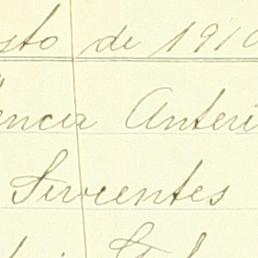 sto de 1910
encia Anteri
Sirvientes